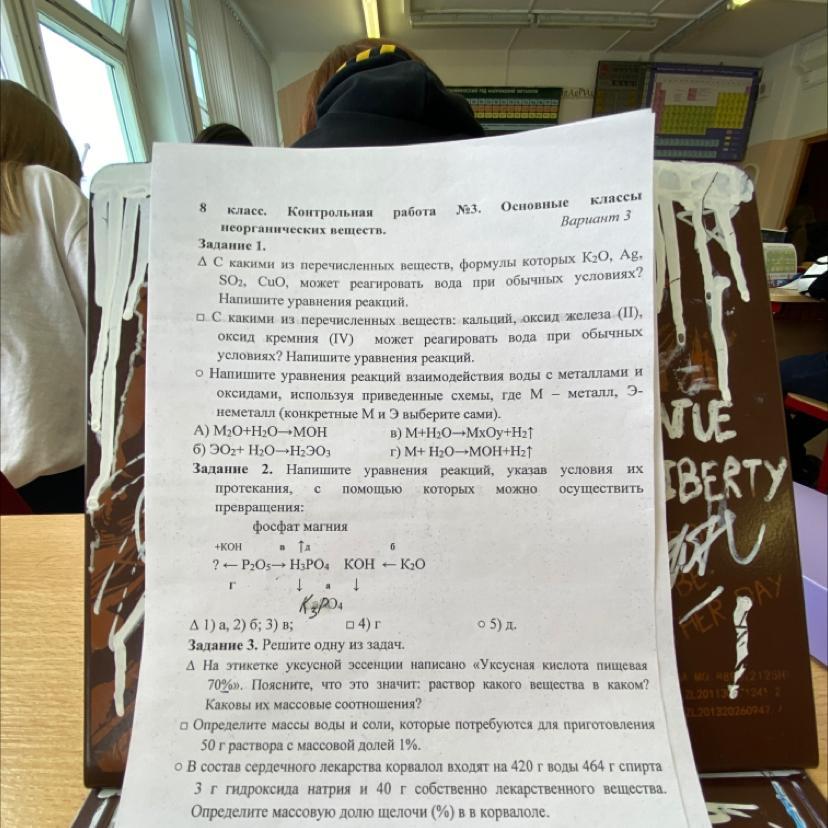 8 класс. Контрольная работа №3. Основные классы
неорганических веществ. Вариант 3
Задание 1.
Δ С какими из перечисленных веществ, формулы которых K₂O, Ag,
SO₂, CuO, может реагировать вода при обычных условиях?
Напишите уравнения реакций.
□ С какими из перечисленных веществ: кальций, оксид железа (II),
оксид кремния (IV) может реагировать вода при обычных
условиях? Напишите уравнения реакций.
○ Напишите уравнения реакций взаимодействия воды с металлами и
оксидами, используя приведенные схемы, где М – металл, Э-
неметалл (конкретные М и Э выберите сами).
А) M₂O+H₂O→MOH в) M+H₂O→MxOy+H₂↑
б) ЭO₂+ H₂O→H₂ЭO₃ г) M+ H₂O→MOH+H₂↑
Задание 2. Напишите уравнения реакций, указав условия их
протекания, с помощью которых можно осуществить
превращения:
фосфат магния
+KOH в ↑д б
? ← P₂O₅→ H₃PO₄ KOH ← K₂O
г ↓ а ↓
K₃PO₄
Δ 1) а, 2) б; 3) в; □ 4) г ○ 5) д.
Задание 3. Решите одну из задач.
Δ На этикетке уксусной эссенции написано «Уксусная кислота пищевая
70%». Поясните, что это значит: раствор какого вещества в каком?
Каковы их массовые соотношения?
□ Определите массы воды и соли, которые потребуются для приготовления
50 г раствора с массовой долей 1%.
○ В состав сердечного лекарства корвалол входят на 420 г воды 464 г спирта
3 г гидроксида натрия и 40 г собственно лекарственного вещества.
Определите массовую долю щелочи (%) в в корвалоле.
IBERTY